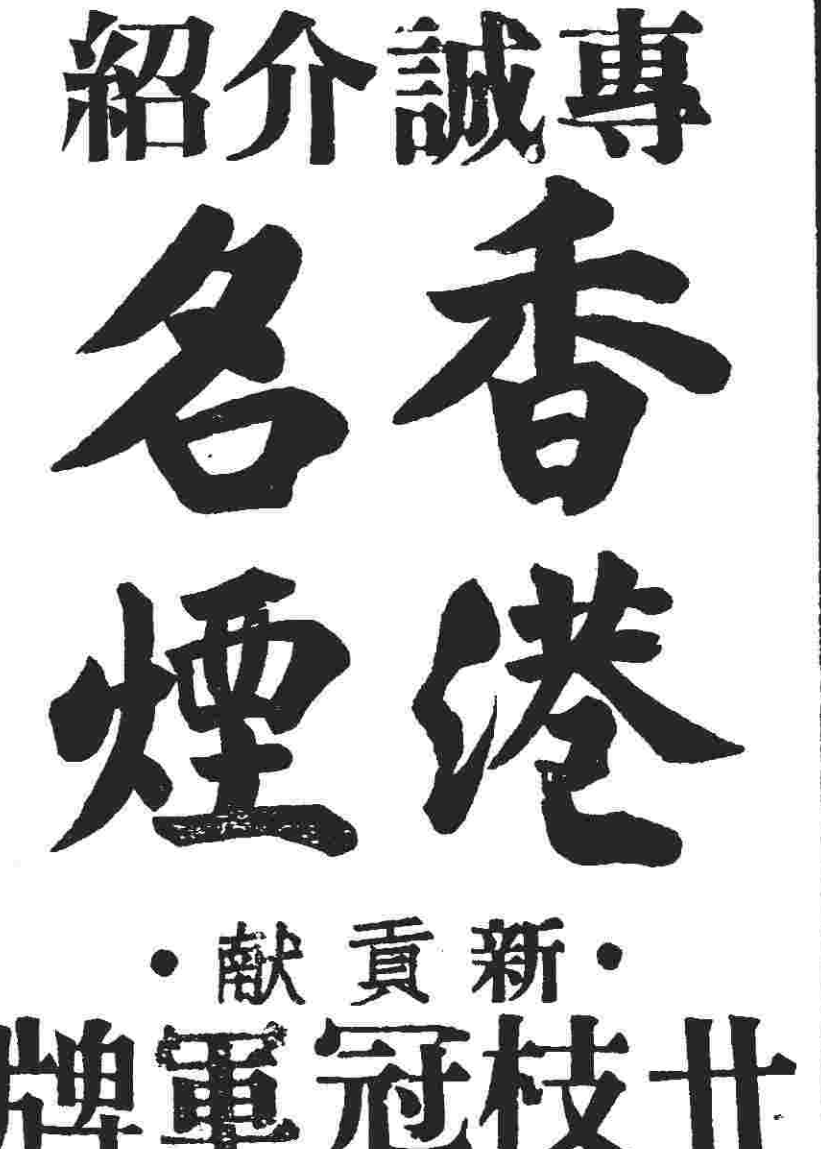 專誠介紹
香港
名煙
·新貢献·
廿枝冠軍牌